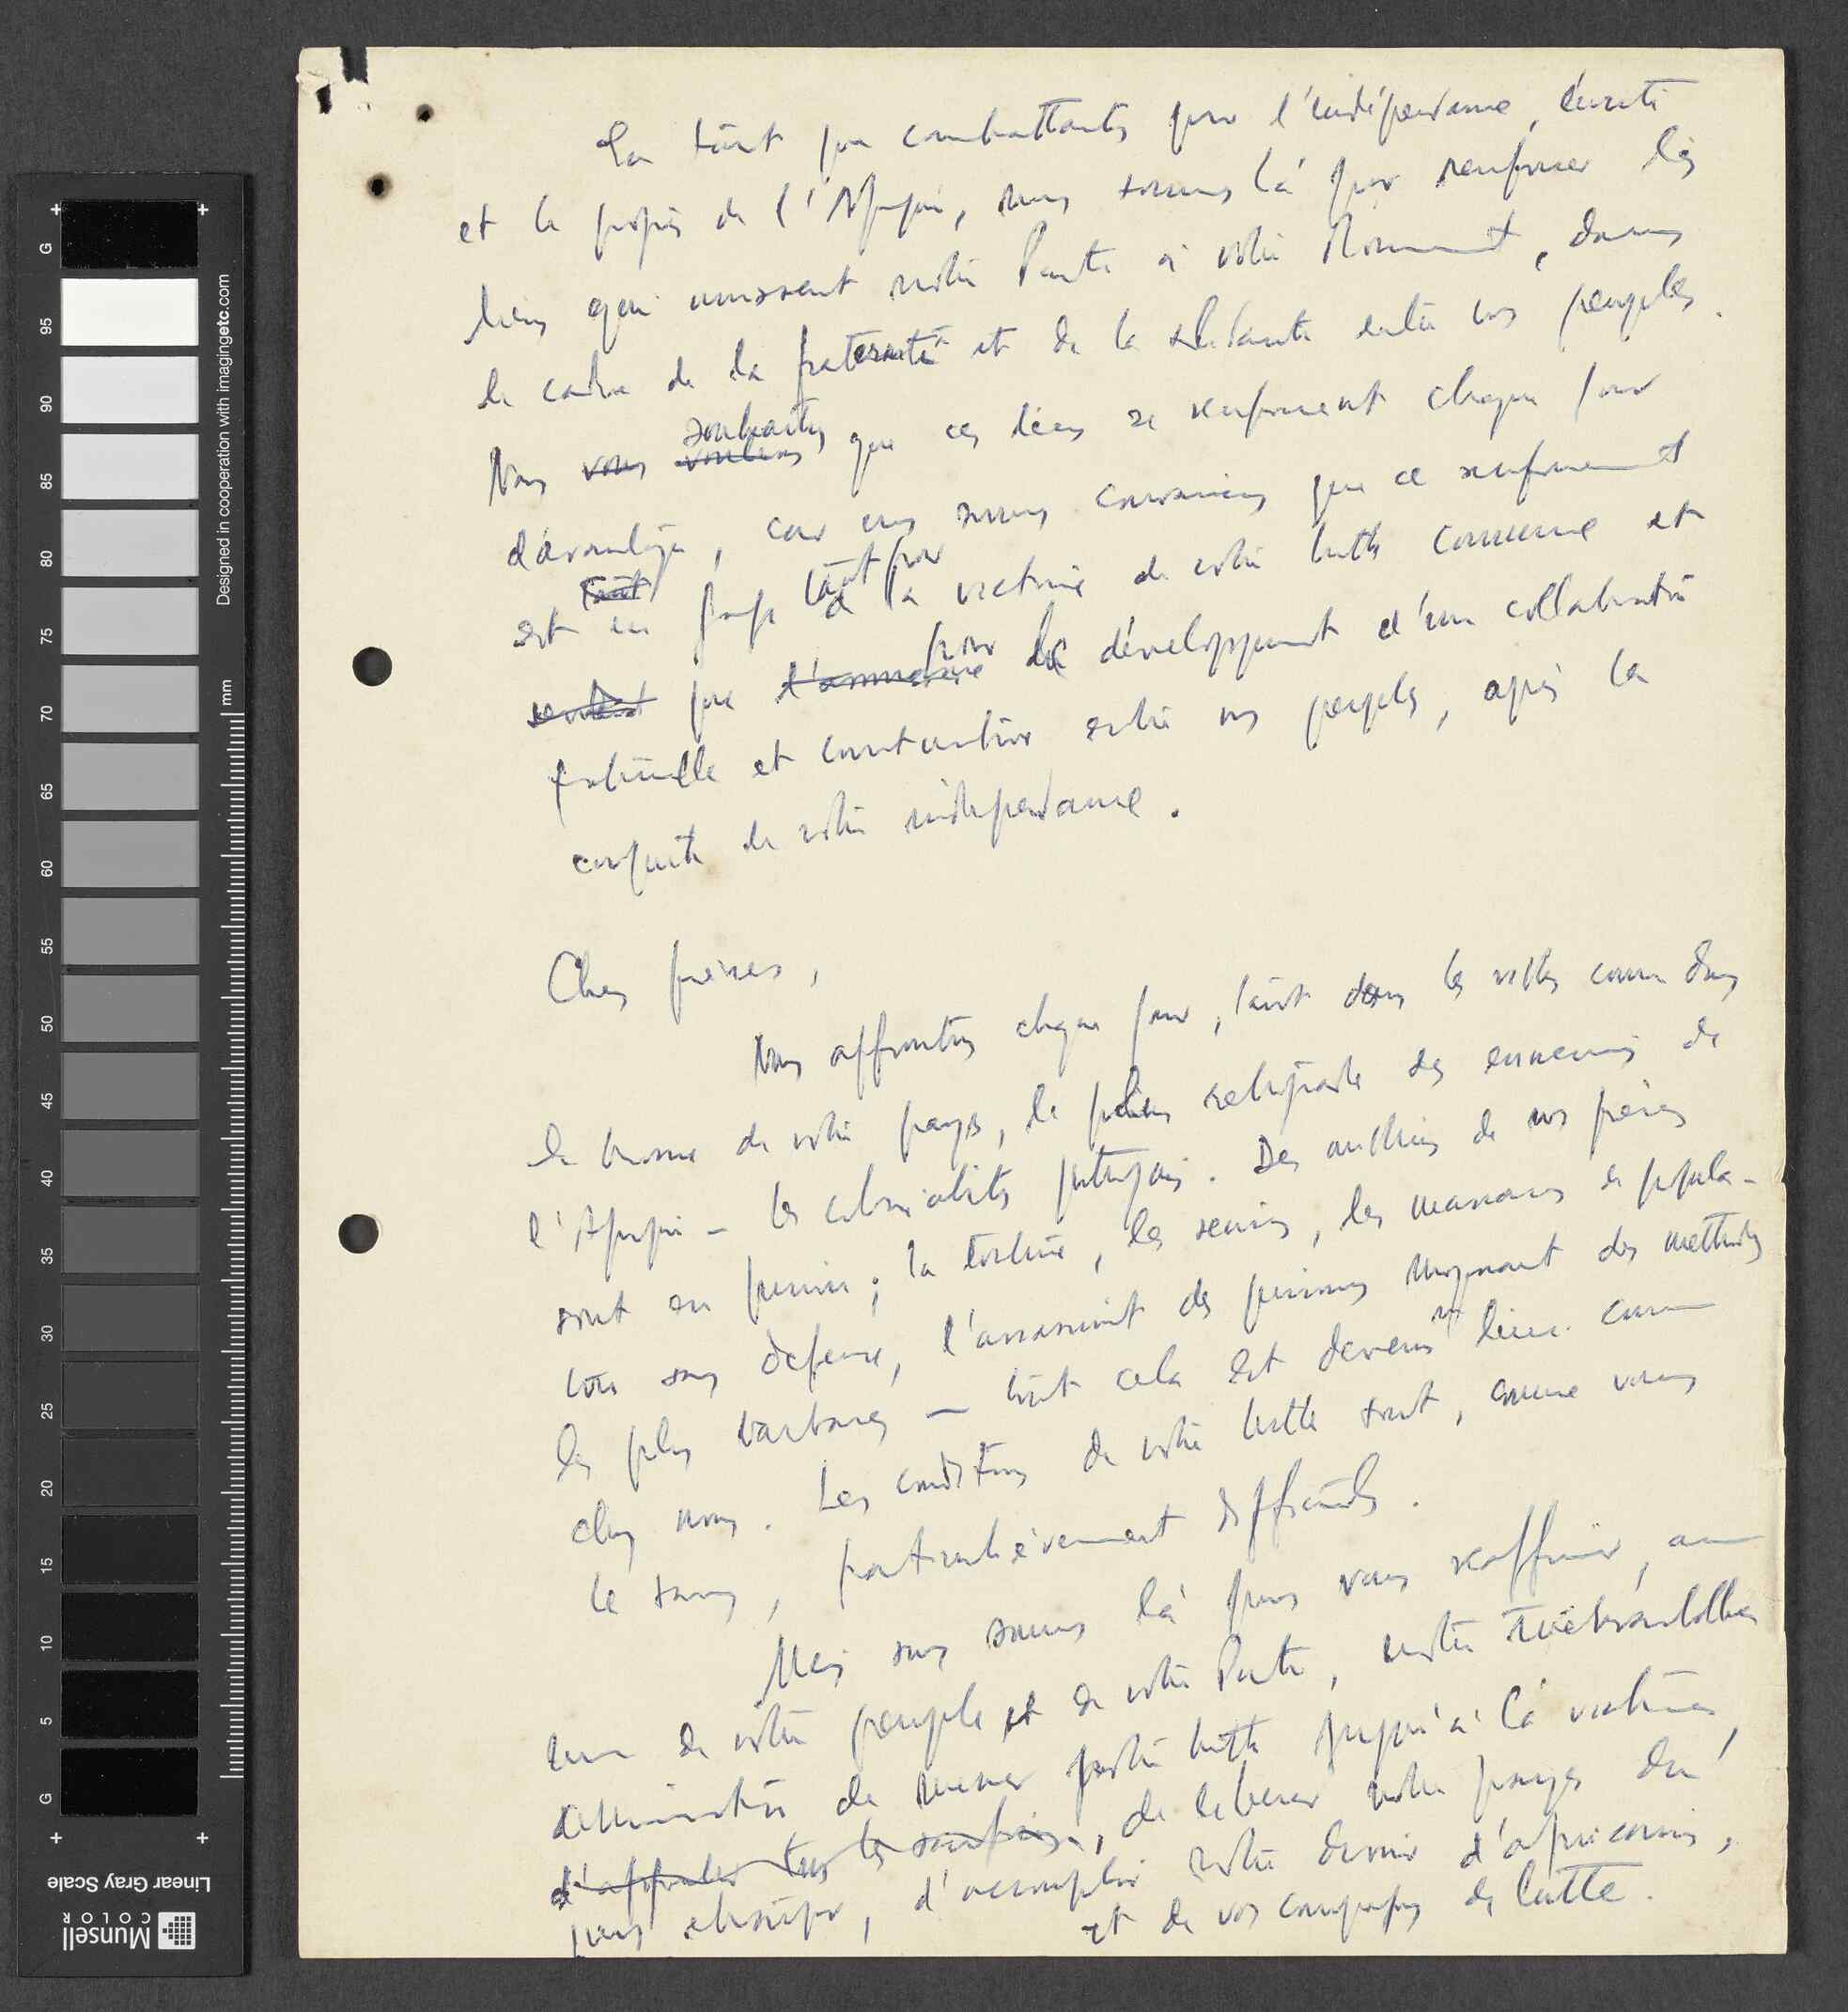 En tant que combattants pour l'indépendance, l'unité
et le progrès de l'Afrique, nous sommes là pour renforcer les
liens qui unissent notre Parti à votre Mouvement, dans
le cadre de la fraternité et de la solidarité entre nos peuples.
Nous vous voulons souhaitons que ces liens se renforcent chaque jour
davantage, car nous sommes convaincus que ce renforcement
est tant un gage tant pour la victoire de notre lutte commune et
que l'ammorce pour le développement d'une collaboration
fraternelle et constructive entre nos peuples, après la
conquête de notre indépendance.
Chers frères,
Nous affrontons chaque jour, tant dans les villes comme dans
la brousse de notre pays, le plus rétrograde des ennemis de
l'Afrique - les colonialistes portugais. Des milliers de nos frères
sont en prison; la torture, les sévices, les massacres de popula-
tions sans défense, l'assassinat des prisonniers moyennant des méthodes
les plus barbares — tout cela est devenu lieu comm
chez nous. Les conditions de notre lutte sont, comme vous
le savez, particulièrement difficiles.
Mais nous sommes là pour vous réaffirmer, au
nom de notre peuple et de notre Parti, notre inébranlable
détermination de mener notre lutte jusqu'à la victoire,
d'affronter tous les sacrifices, de libérer notre pays du
joug étranger, d'accomplir notre devoir d'africains,
et de vos compagnons de lutte.